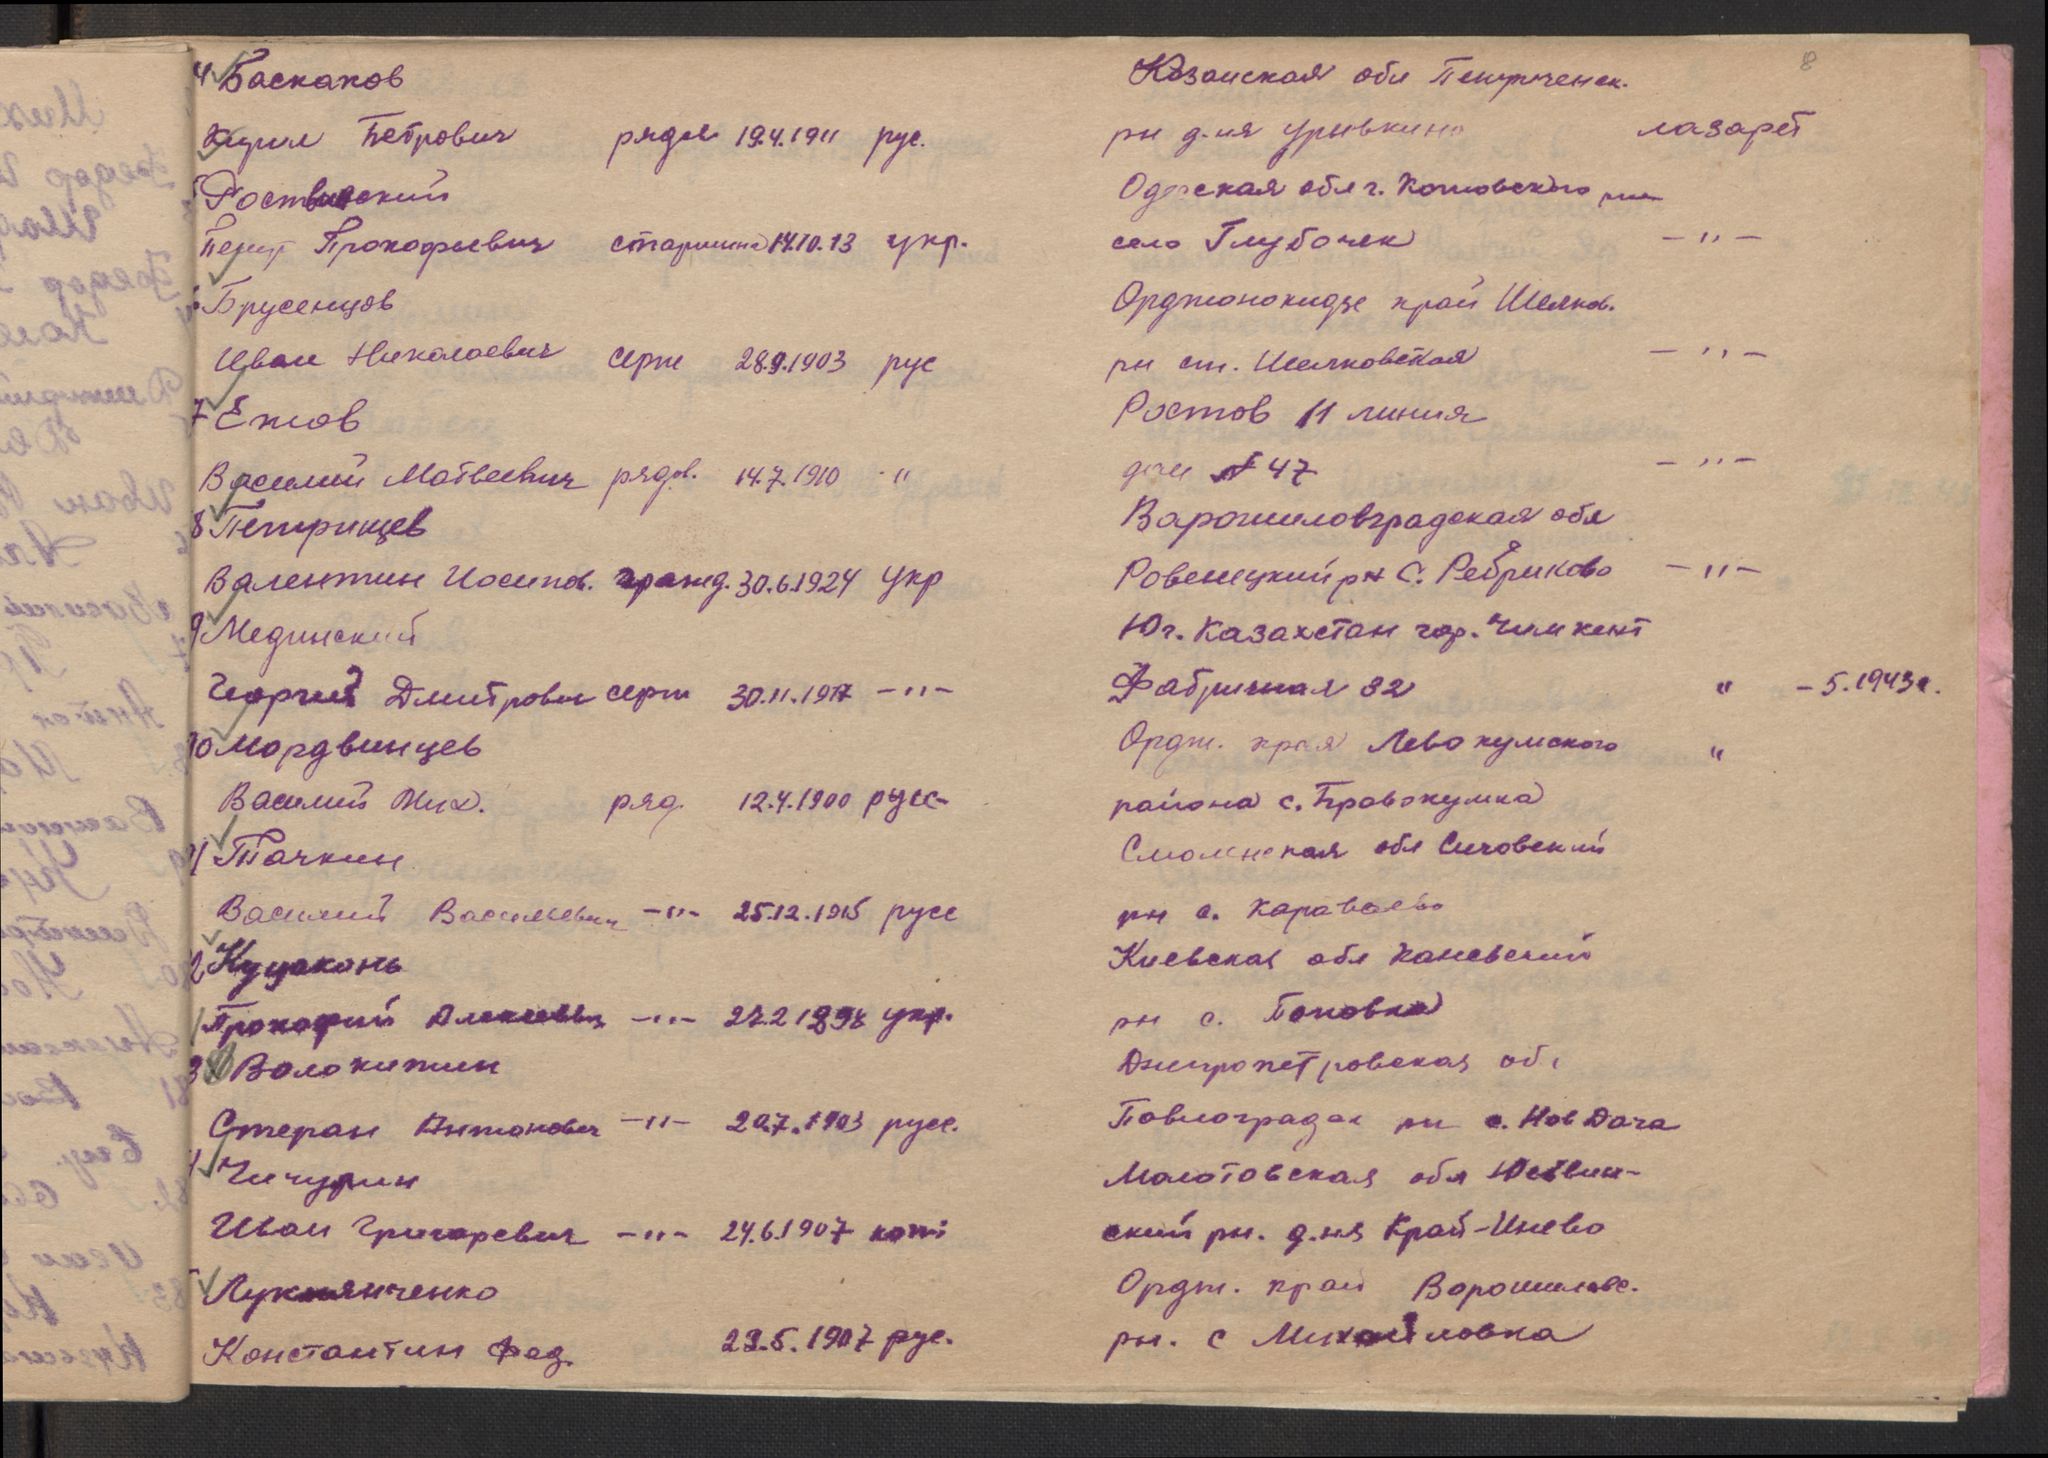 8
4 Баскаков Казанская обл
Кирил Петрович рядов 19.4.1911 рус. рн д-ня Урывкино лазарет
5 Одесская обл г. Котовского рн
Петр Прокофиевич старшина 14.10.13 укр. село Глубочек -"-
6 Брусенцов Орджоникидзе край Шелков.
Иван Николаевич серж 28.9.1903 рус рн ст. Шелковская -"-
7 Ежов Ростов 11 линия
Василий Матвеевич рядов. 14.7.1910 " дом № 47 -"-
8 Петрищев Варошиловградская обл
Валентин Иосипов. гражд. 30.6.1924 укр Ровенецкий рн С. Ребриково -"-
9 Мединский Юг. Казахстан гор. Чимкент
Георгий Дмитрович серж 30.11.1917 -"- Фабричная 32 " - 5.1943г.
10 Мордвинцев Ордж. края Левокумского "
Василий Мих. ряд. 12.4.1900 русс- района с. Правокумка
11 Тачкин Смоленская обл Сичовский
Василий Васильевич -"- 25.12.1915 русс рн с. Караваево
2 Куцаконь Киевская обл Каневский
Прокофий Алексеевич -"- 27.2 1898 укр. рн с. Поповка
3 Волокитин Днипропетровская об
Степан Антонович -"- 20.7.1903 русс. Повлоградск рн с. Нов Дача
4 Чичурин Молотовская обл Юсьвин-
Иван Григоревич -"- 24.6.1907 ский рн. д.ня Край-Инево
5 Лукьянченко Ордж. край Ворошиловс.
Константин Фед. 23.5.1907 рус. рн. с Михайловка